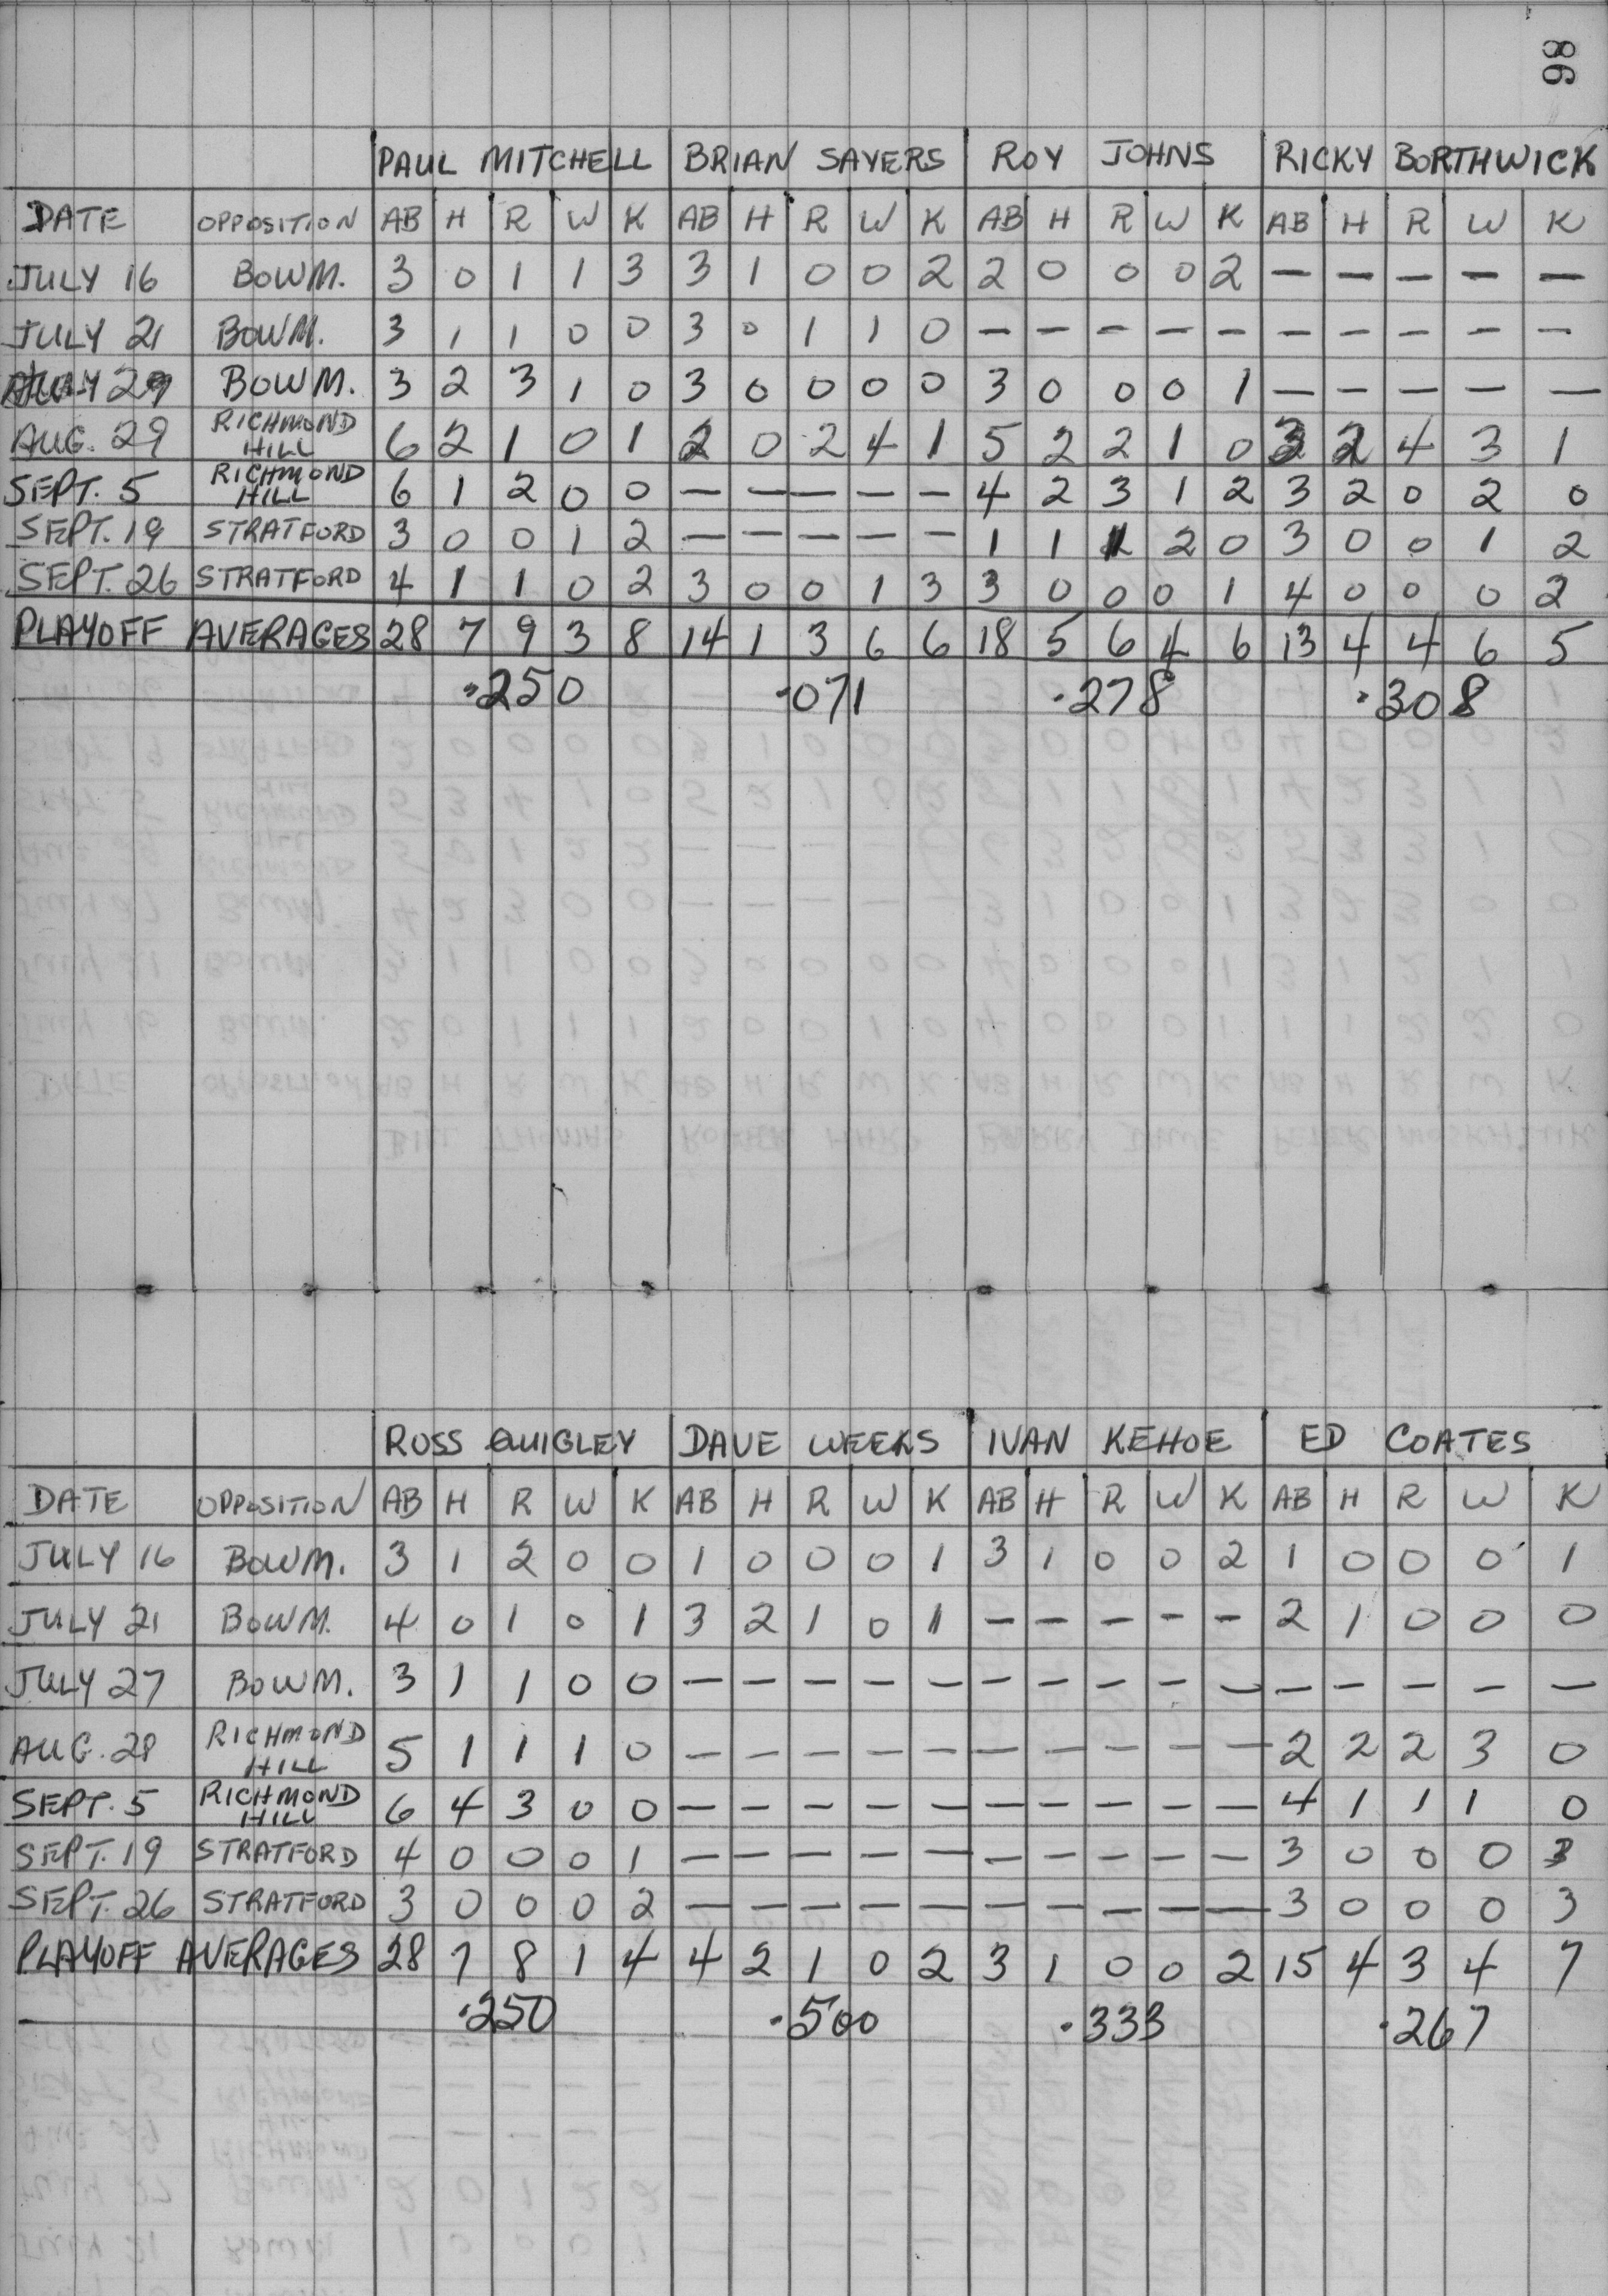 98
PAUL MITCHELL BRIAN SAYERS ROY JOHNS RICKY BORTHWICK
DATE OPPOSITION AB H R W K AB H R W K AB H R W K AB H R W K
JULY 16 BOWM. 3 0 1 1 3 3 1 0 0 2 2 0 0 0 2 — — — — —
JULY 21 BOWM. 3 1 1 0 0 3 0 1 1 0 — — — — — — — — — —
JULY 29 BOWM. 3 2 3 1 0 3 0 0 0 0 3 0 0 0 1 — — — — —
AUG. 29 RICHMOND HILL 6 2 1 0 1 2 0 2 4 1 5 2 2 1 0 3 2 4 3 1
SEPT. 5 RICHMOND HILL 6 1 2 0 0 — — — — — 4 2 3 1 2 3 2 0 2 0
SEPT. 19 STRATFORD 3 0 0 1 2 — — — — — 1 1 1 2 0 3 0 0 1 2
SEPT. 26 STRATFORD 4 1 1 0 2 3 0 0 1 3 3 0 0 0 1 4 0 0 0 2
PLAYOFF AVERAGES 28 7 9 3 8 14 1 3 6 6 18 5 6 4 6 13 4 4 6 5
.250 .071 .278 .308
ROSS QUIGLEY DAVE WEEKS IVAN KEHOE ED COATES
DATE OPPOSITION AB H R W K AB H R W K AB H R W K AB H R W K
JULY 16 BOWM. 3 1 2 0 0 1 0 0 0 1 3 1 0 0 2 1 0 0 0 1
JULY 21 BOWM. 4 0 1 0 1 3 2 1 0 1 — — — — — 2 1 0 0 0
JULY 27 BOWM. 3 1 1 0 0 — — — — — — — — — — — — — — —
AUG. 28 RICHMOND HILL 5 1 1 1 0 — — — — — — — — — — 2 2 2 3 0
SEPT. 5 RICHMOND HILL 6 4 3 0 0 — — — — — — — — — — 4 1 1 1 0
SEPT. 19 STRATFORD 4 0 0 0 1 — — — — — — — — — — 3 0 0 0 3
SEPT. 26 STRATFORD 3 0 0 0 2 — — — — — — — — — — 3 0 0 0 3
PLAYOFF AVERAGES 28 7 8 1 4 4 2 1 0 2 3 1 0 0 2 15 4 3 4 7
.250 .500 .333 .267